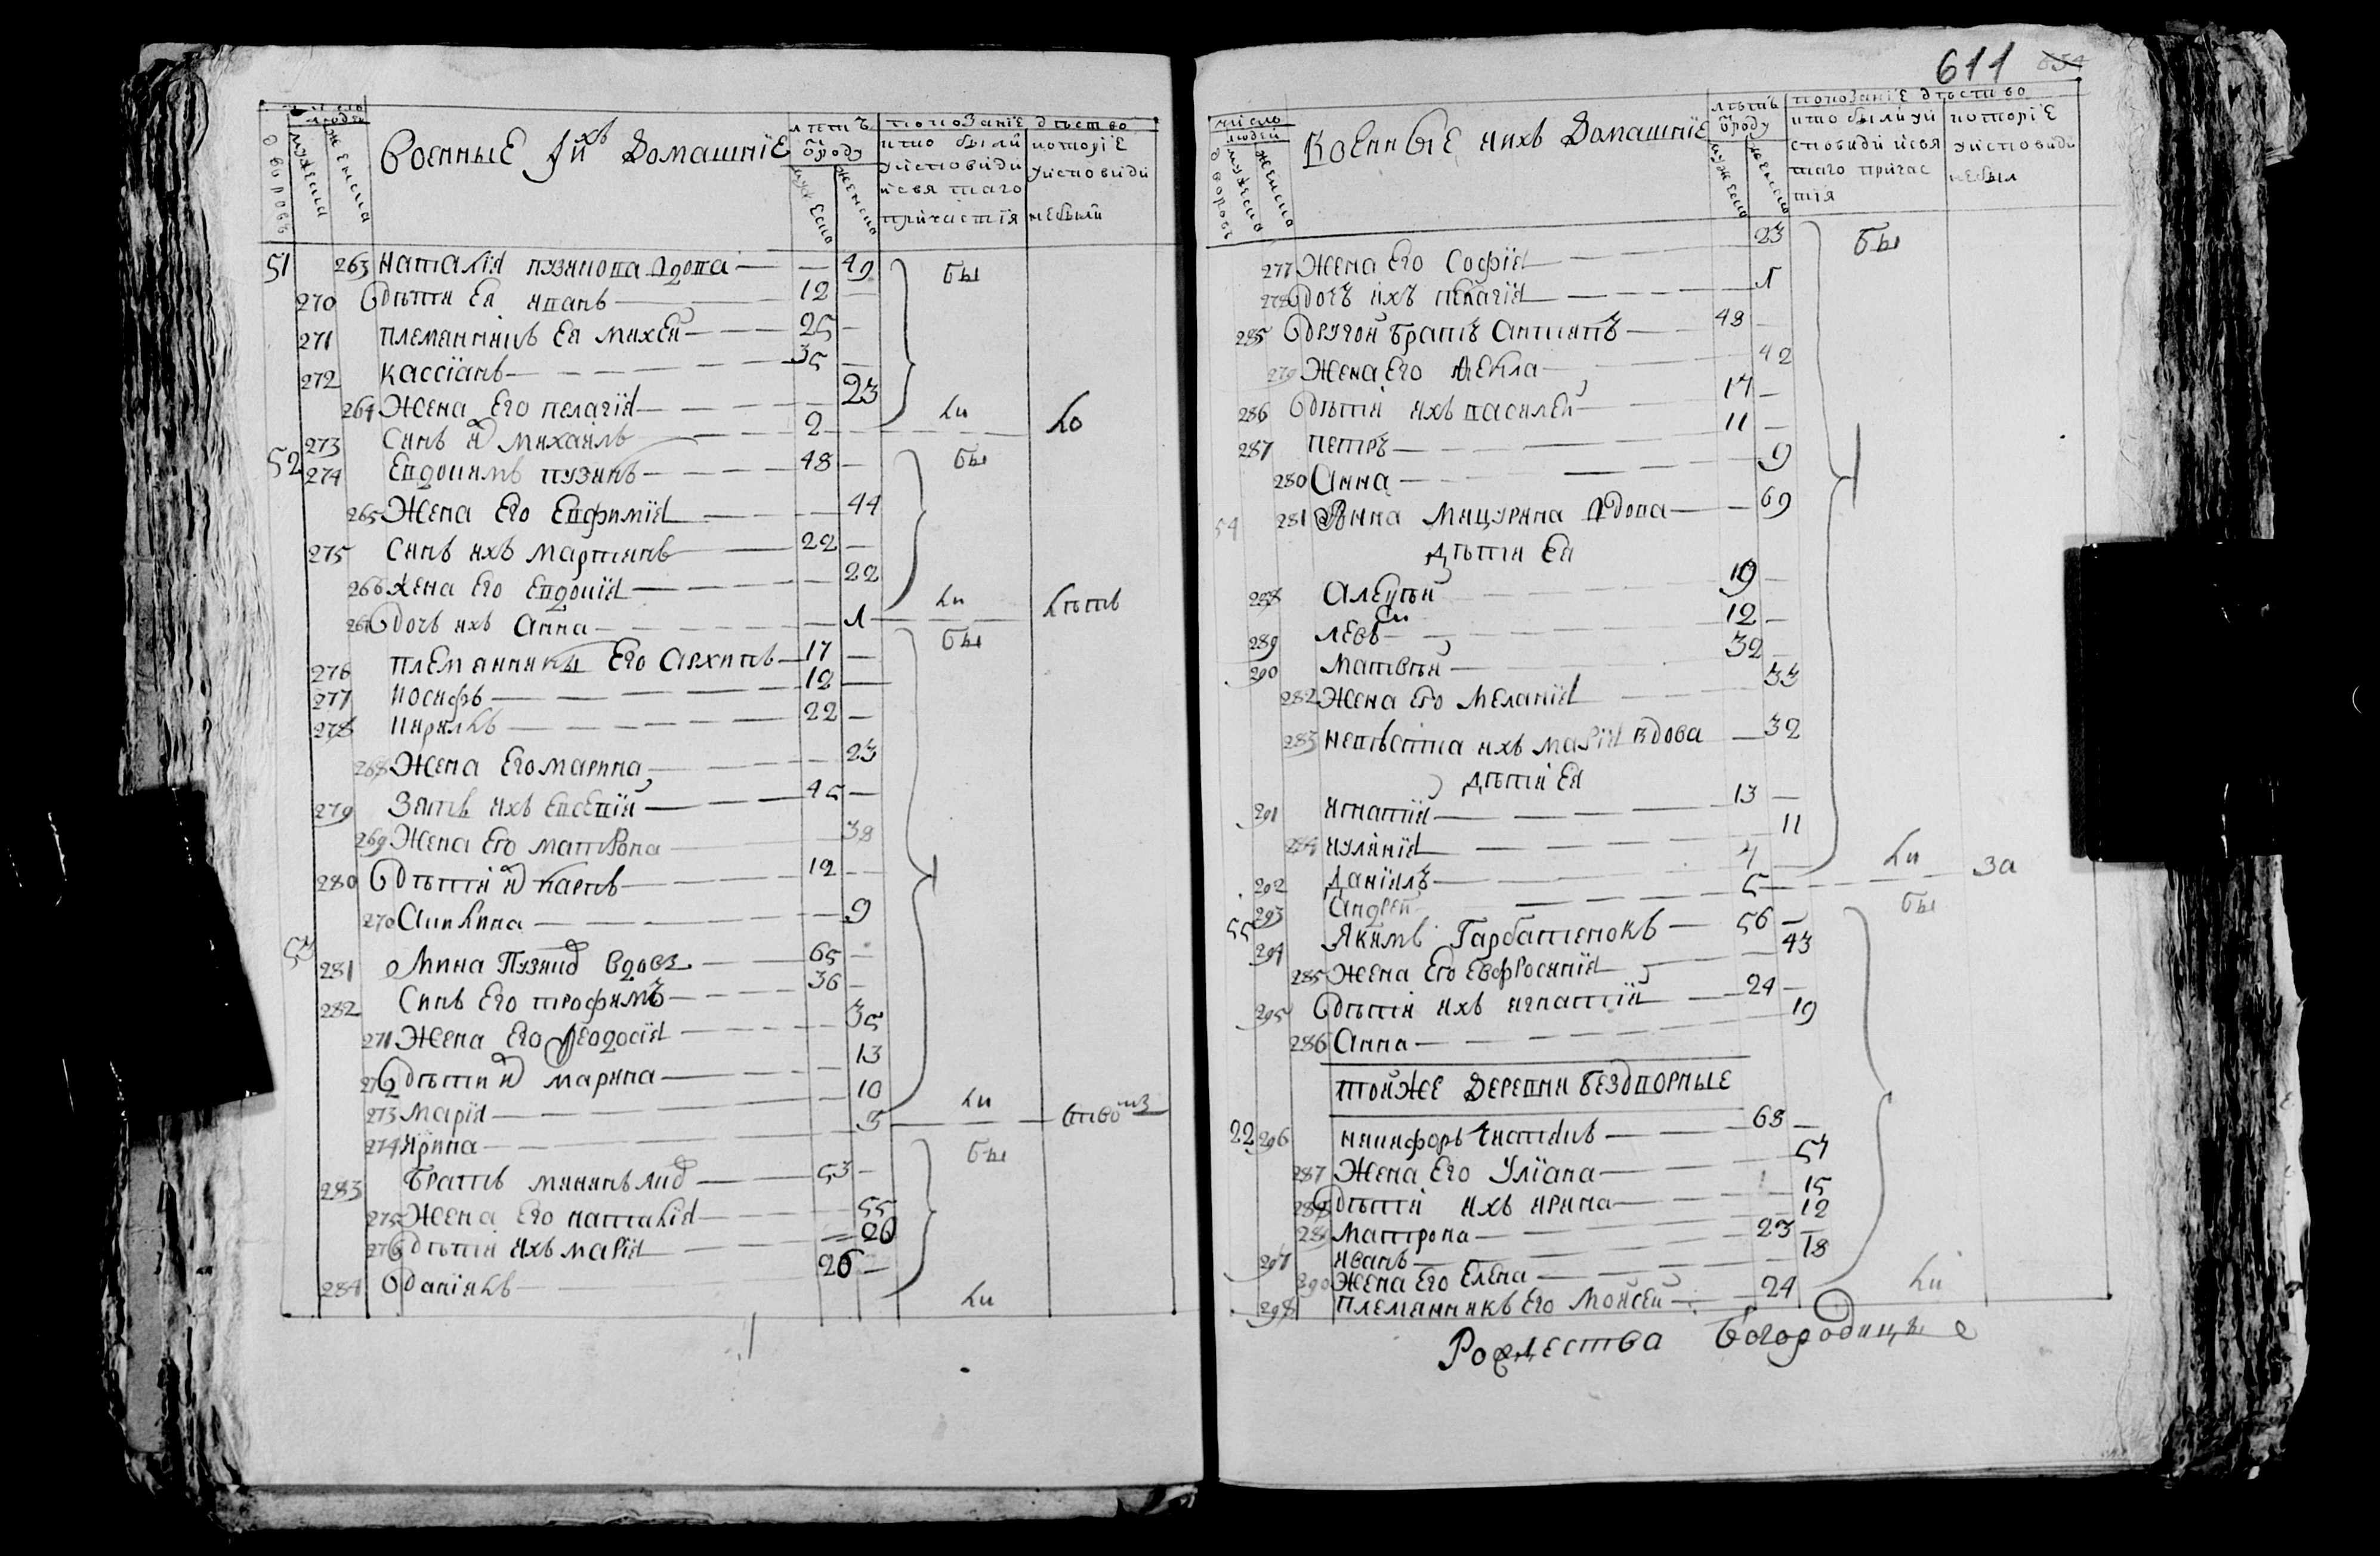 число людей
дворовъ
мужеска
женска
Военные и ихъ Домашніе
лѣтъ ѿроду
мужеска
женска
показаніе дѣйство
кто были уисповиди исвятаго причастія
которіе уисповиди небыли
51 263 Наталія пузикова вдова — — 49 бы
270 дѣти Ея иванъ — 12 —
271 племянникъ Ея михей — 25 —
272 кассіанъ — 35 —
264 Жена Его пелагія — — 23
273 Синъ их михаилъ — 2 — ли ло
52 274 Евдокимъ пузикъ — 48 — бы
265 Жена Его Евфимія — — 44
275 Синъ ихъ мартинъ — 22 —
266 жена Его Евдокія — — 22
267 дочь ихъ Анна — — 1 ли лѣтъ
276 племянники Его Архипъ — 17 — бы
277 иосифъ — 12 —
278 кирилъ — 22 —
268 Жена Его марина — — 23
279 Зять ихъ Евсевій — 45 —
269 Жена Его матрона — — 38
280 дѣти их карпъ — 12 —
270 Акилина — — 9
53 281 Мина Пузико вдовъ — 65 —
282 Синъ Его трофимъ — 36 —
271 Жена Его Ѳеодосія — — 35
272 дѣти их марина — — 13
273 Марія — — 10
274 Ирина — — 3 ли
283 братъ мининъ — 53 — бы
275 Жена Его наталія — — 55
276 дѣти ихъ марія — — 26
284 даніилъ — 26 — ли
611
число людей
дворовъ
мужеска
женска
Военные иихъ Домашніе
лѣтъ ѿроду
мужеска
женска
показаніе дѣство
кто были уисповиди исвятаго причастія
которіе уисповиди небыли
277 Жена Его Софія — — 23 бы
278 дочъ ихъ пелагія — — 1
285 другой братъ Антипъ — 48 —
279 Жена Его Ѳекла — — 42
286 дѣти ихъ василей — 17 —
287 петръ — 11 —
280 Анна — — 9
54 281 Анна Мицурина вдова — — 69
дѣти Ея
288 Алексѣй — 19 —
289 левъ — 12 —
290 Матвѣй — 32 —
282 Жена Его Меланія — — 33
283 невѣстка ихъ марія вдова — 32
дѣти Ея
291 игнатій — 13 —
284 иуліанія — — 11
292 даніилъ — 4 — ли за
293 Андрей — 5 —
55 294 Якимъ Гарбатенокъ — 56 — бы
285 Жена Его Евфросинія — — 43
295 дѣти ихъ игнатій — 24 —
286 Анна — — 19
тойже деревни бездворные
22 296 никифоръ Чистикъ — 68 —
287 Жена Его Уліана — — 57
288 дѣти ихъ ирина — — 15
289 Матрона — — 12
297 иванъ — 23 —
290 Жена Его Елена — — 18
298 племянникъ Его Моисей — 24 ли
Рождества Богородицы